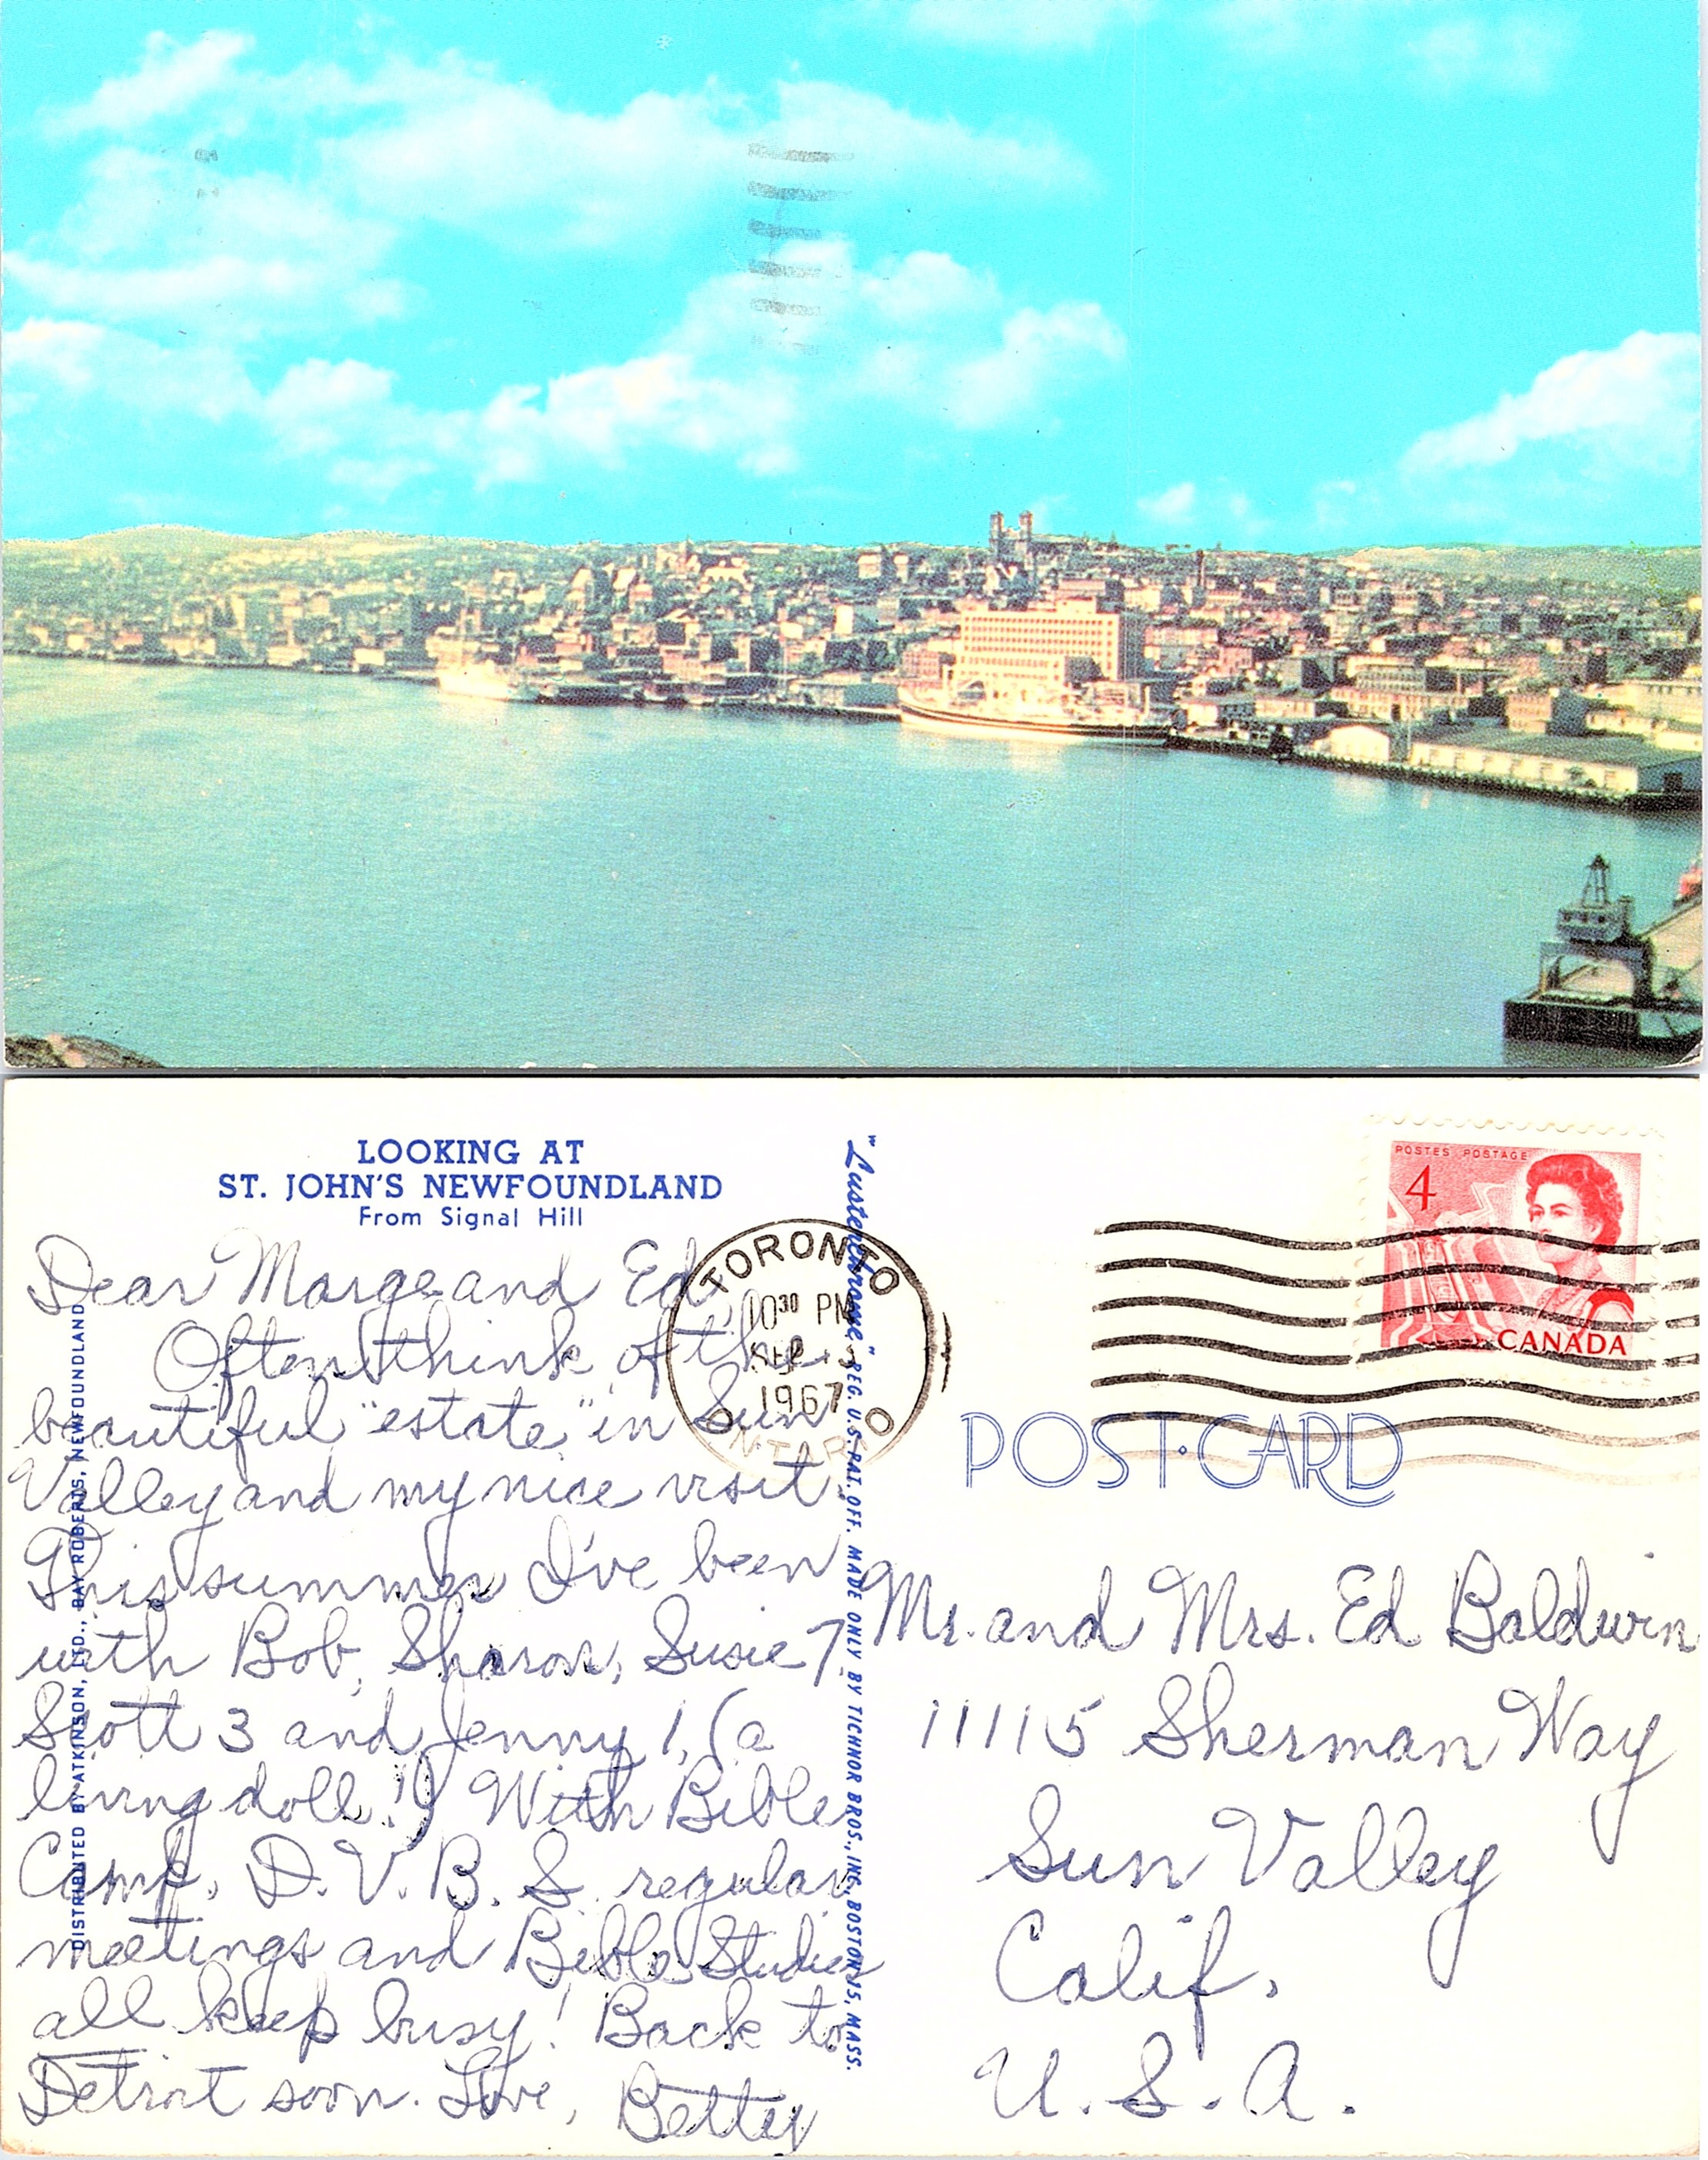 LOOKING AT
ST. JOHN'S NEWFOUNDLAND
From Signal Hill
Dear Marge and Ed,
Often think of the
beautiful "estate" in Sun
Valley and my nice visit.
This summer I've been
with Bob, Sharon, Susie 7,
Scott 3 and Jenny 1, (a
living doll!) With Bible
Camp, D.V.B.S. regular
meetings and Bible Studies
all keep busy! Back to
Detroit soon. Love, Betty
DISTRIBUTED BY ATKINSON, LTD., BAY ROBERTS, NEWFOUNDLAND
"Lusterchrome" REG. U.S. PAT. OFF. MADE ONLY BY TICHNOR BROS., INC., BOSTON 15, MASS.
TORONTO
10 30 PM
SEP
1967
ONTARIO
POSTES POSTAGE
4
CANADA
POST·CARD
Mr. and Mrs. Ed Baldwin
11115 Sherman Way
Sun Valley
Calif.
U.S.A.